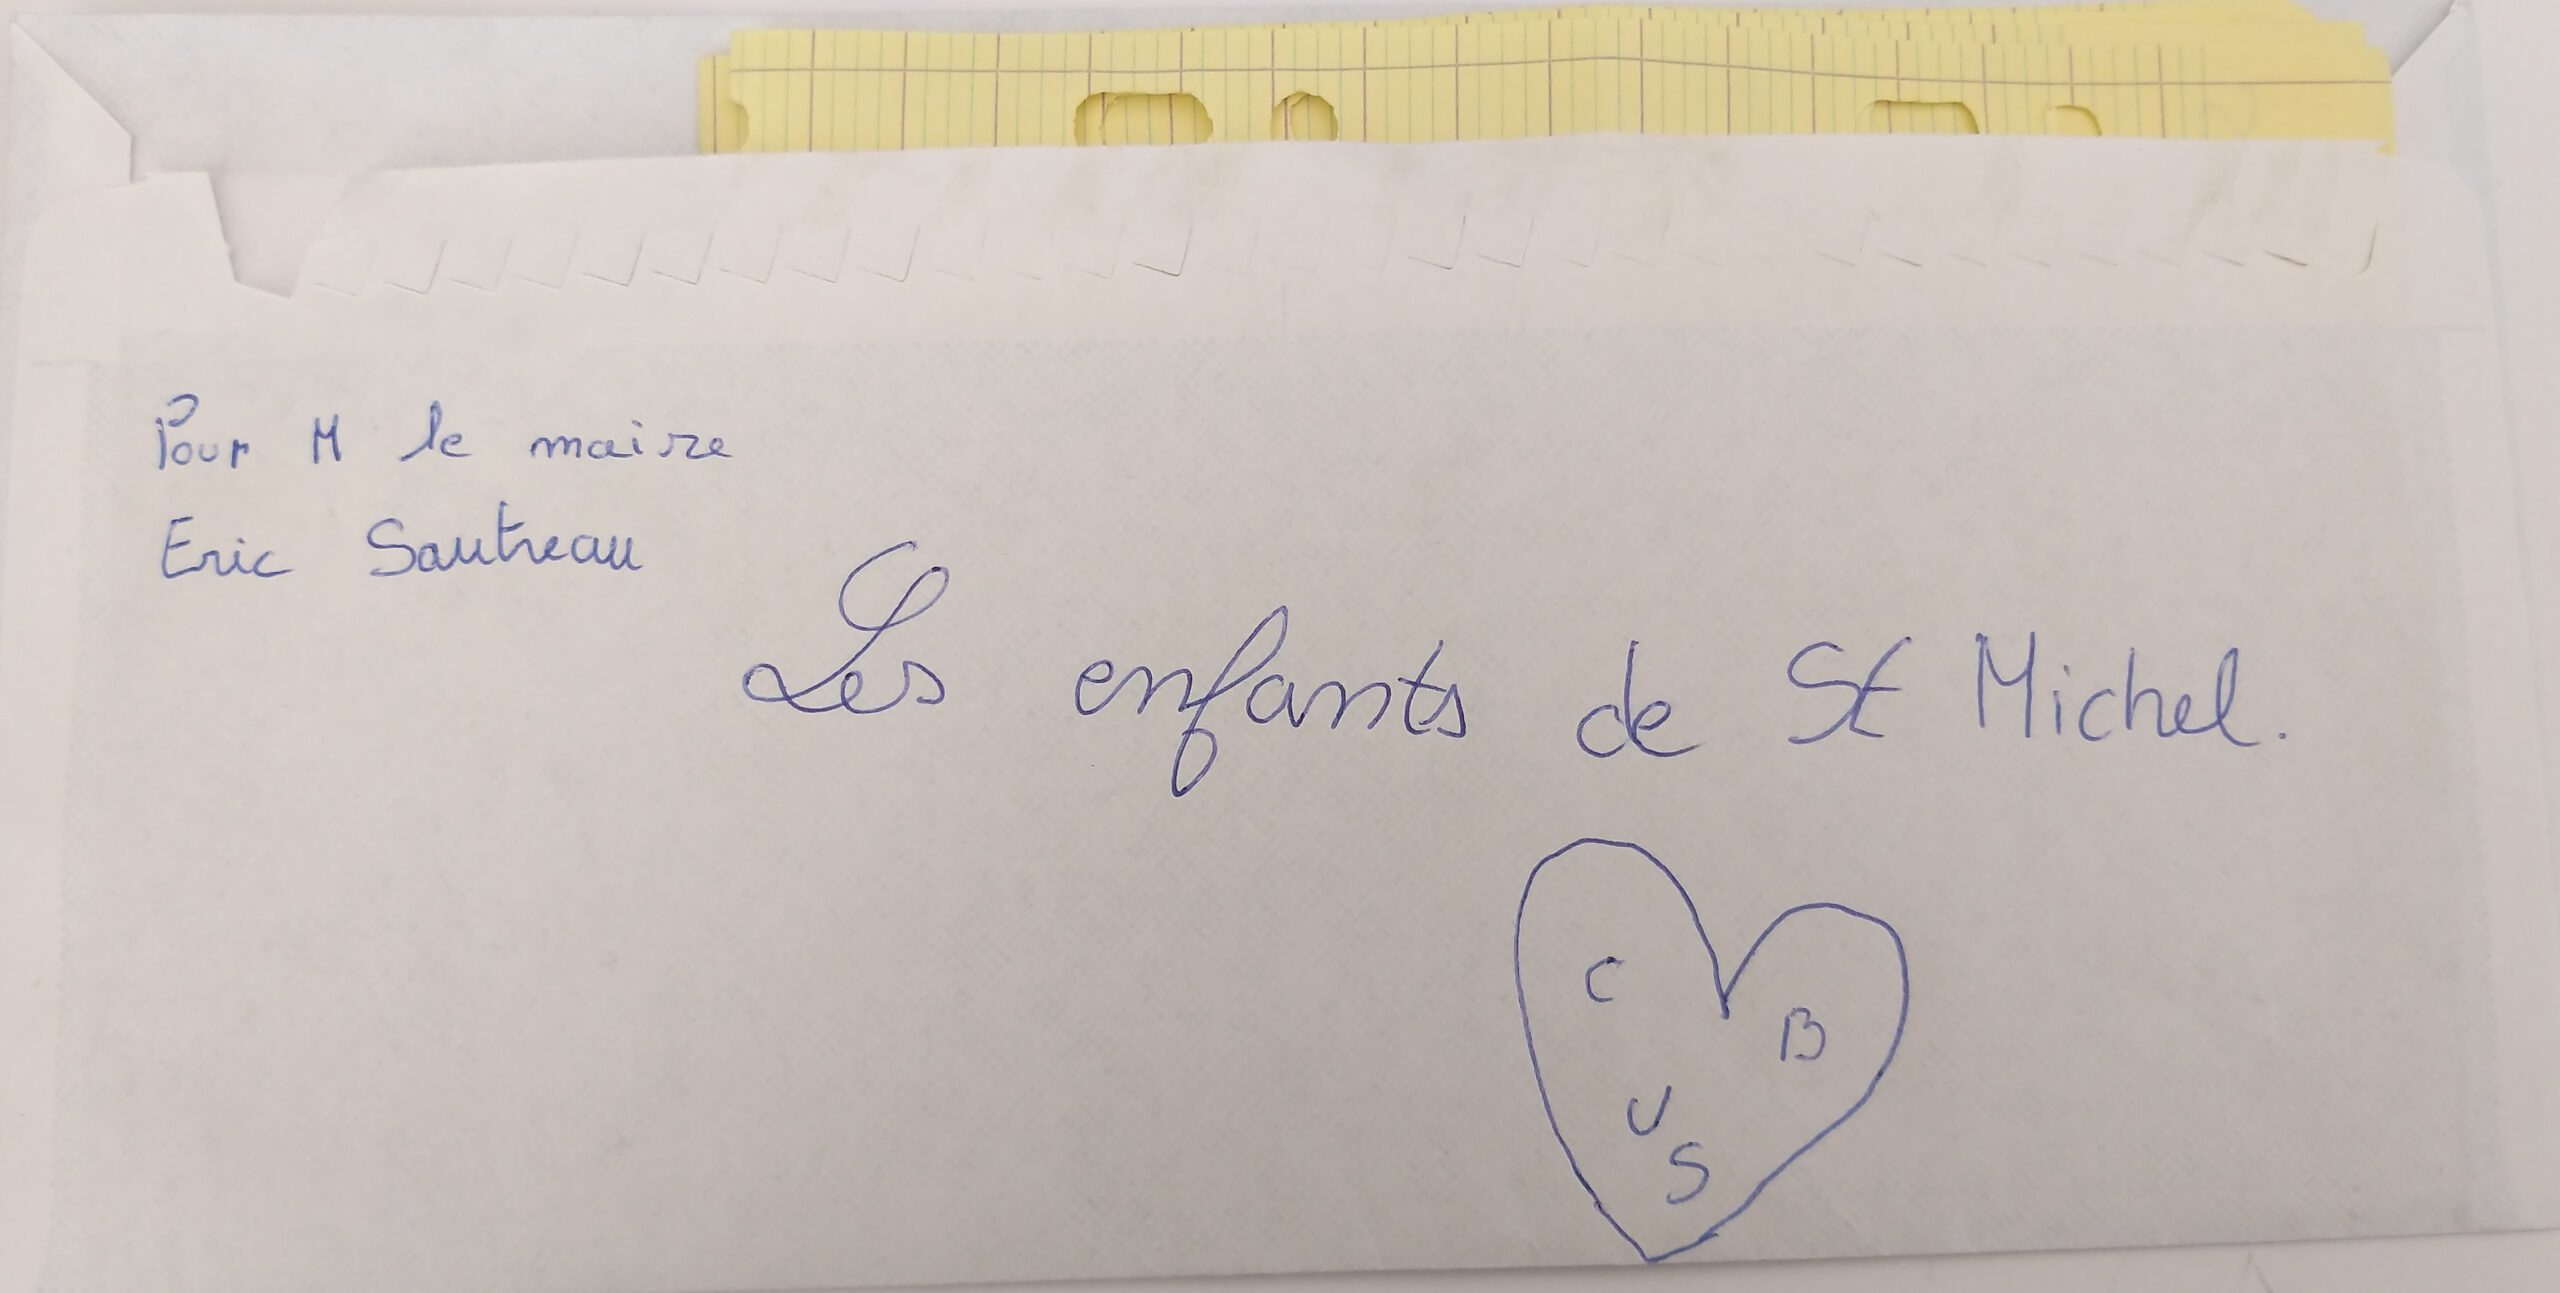 Pour M le maire
Eric Sautreau
Les enfants de St Michel.
C
B
U
S